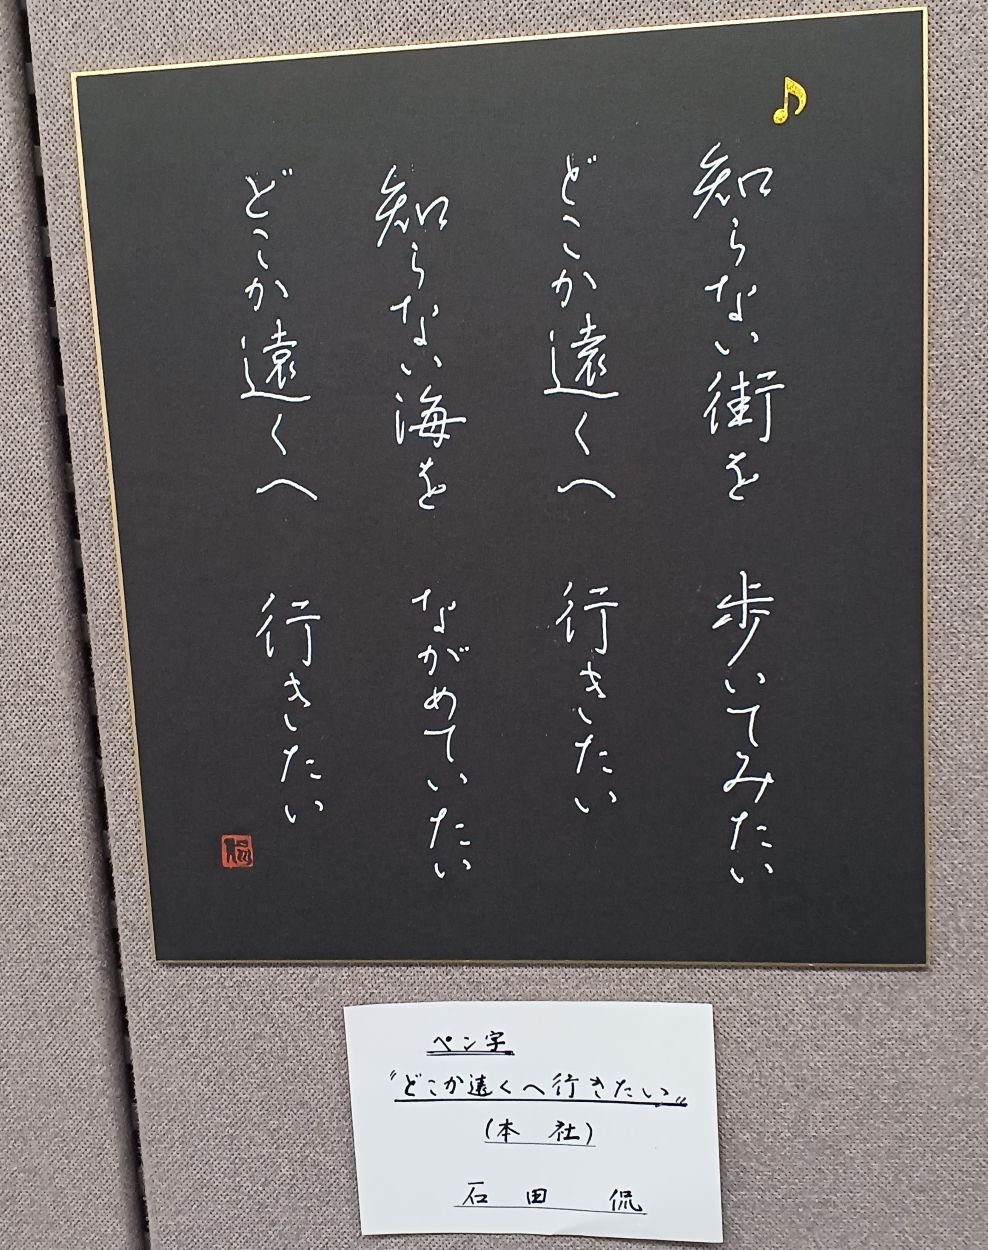 知らない街を 歩いてみたい
どこか遠くへ 行きたい
知らない海を ながめていたい
どこか遠くへ 行きたい
ペン字
“どこか遠くへ行きたい”
(本 社)
石 田 侃